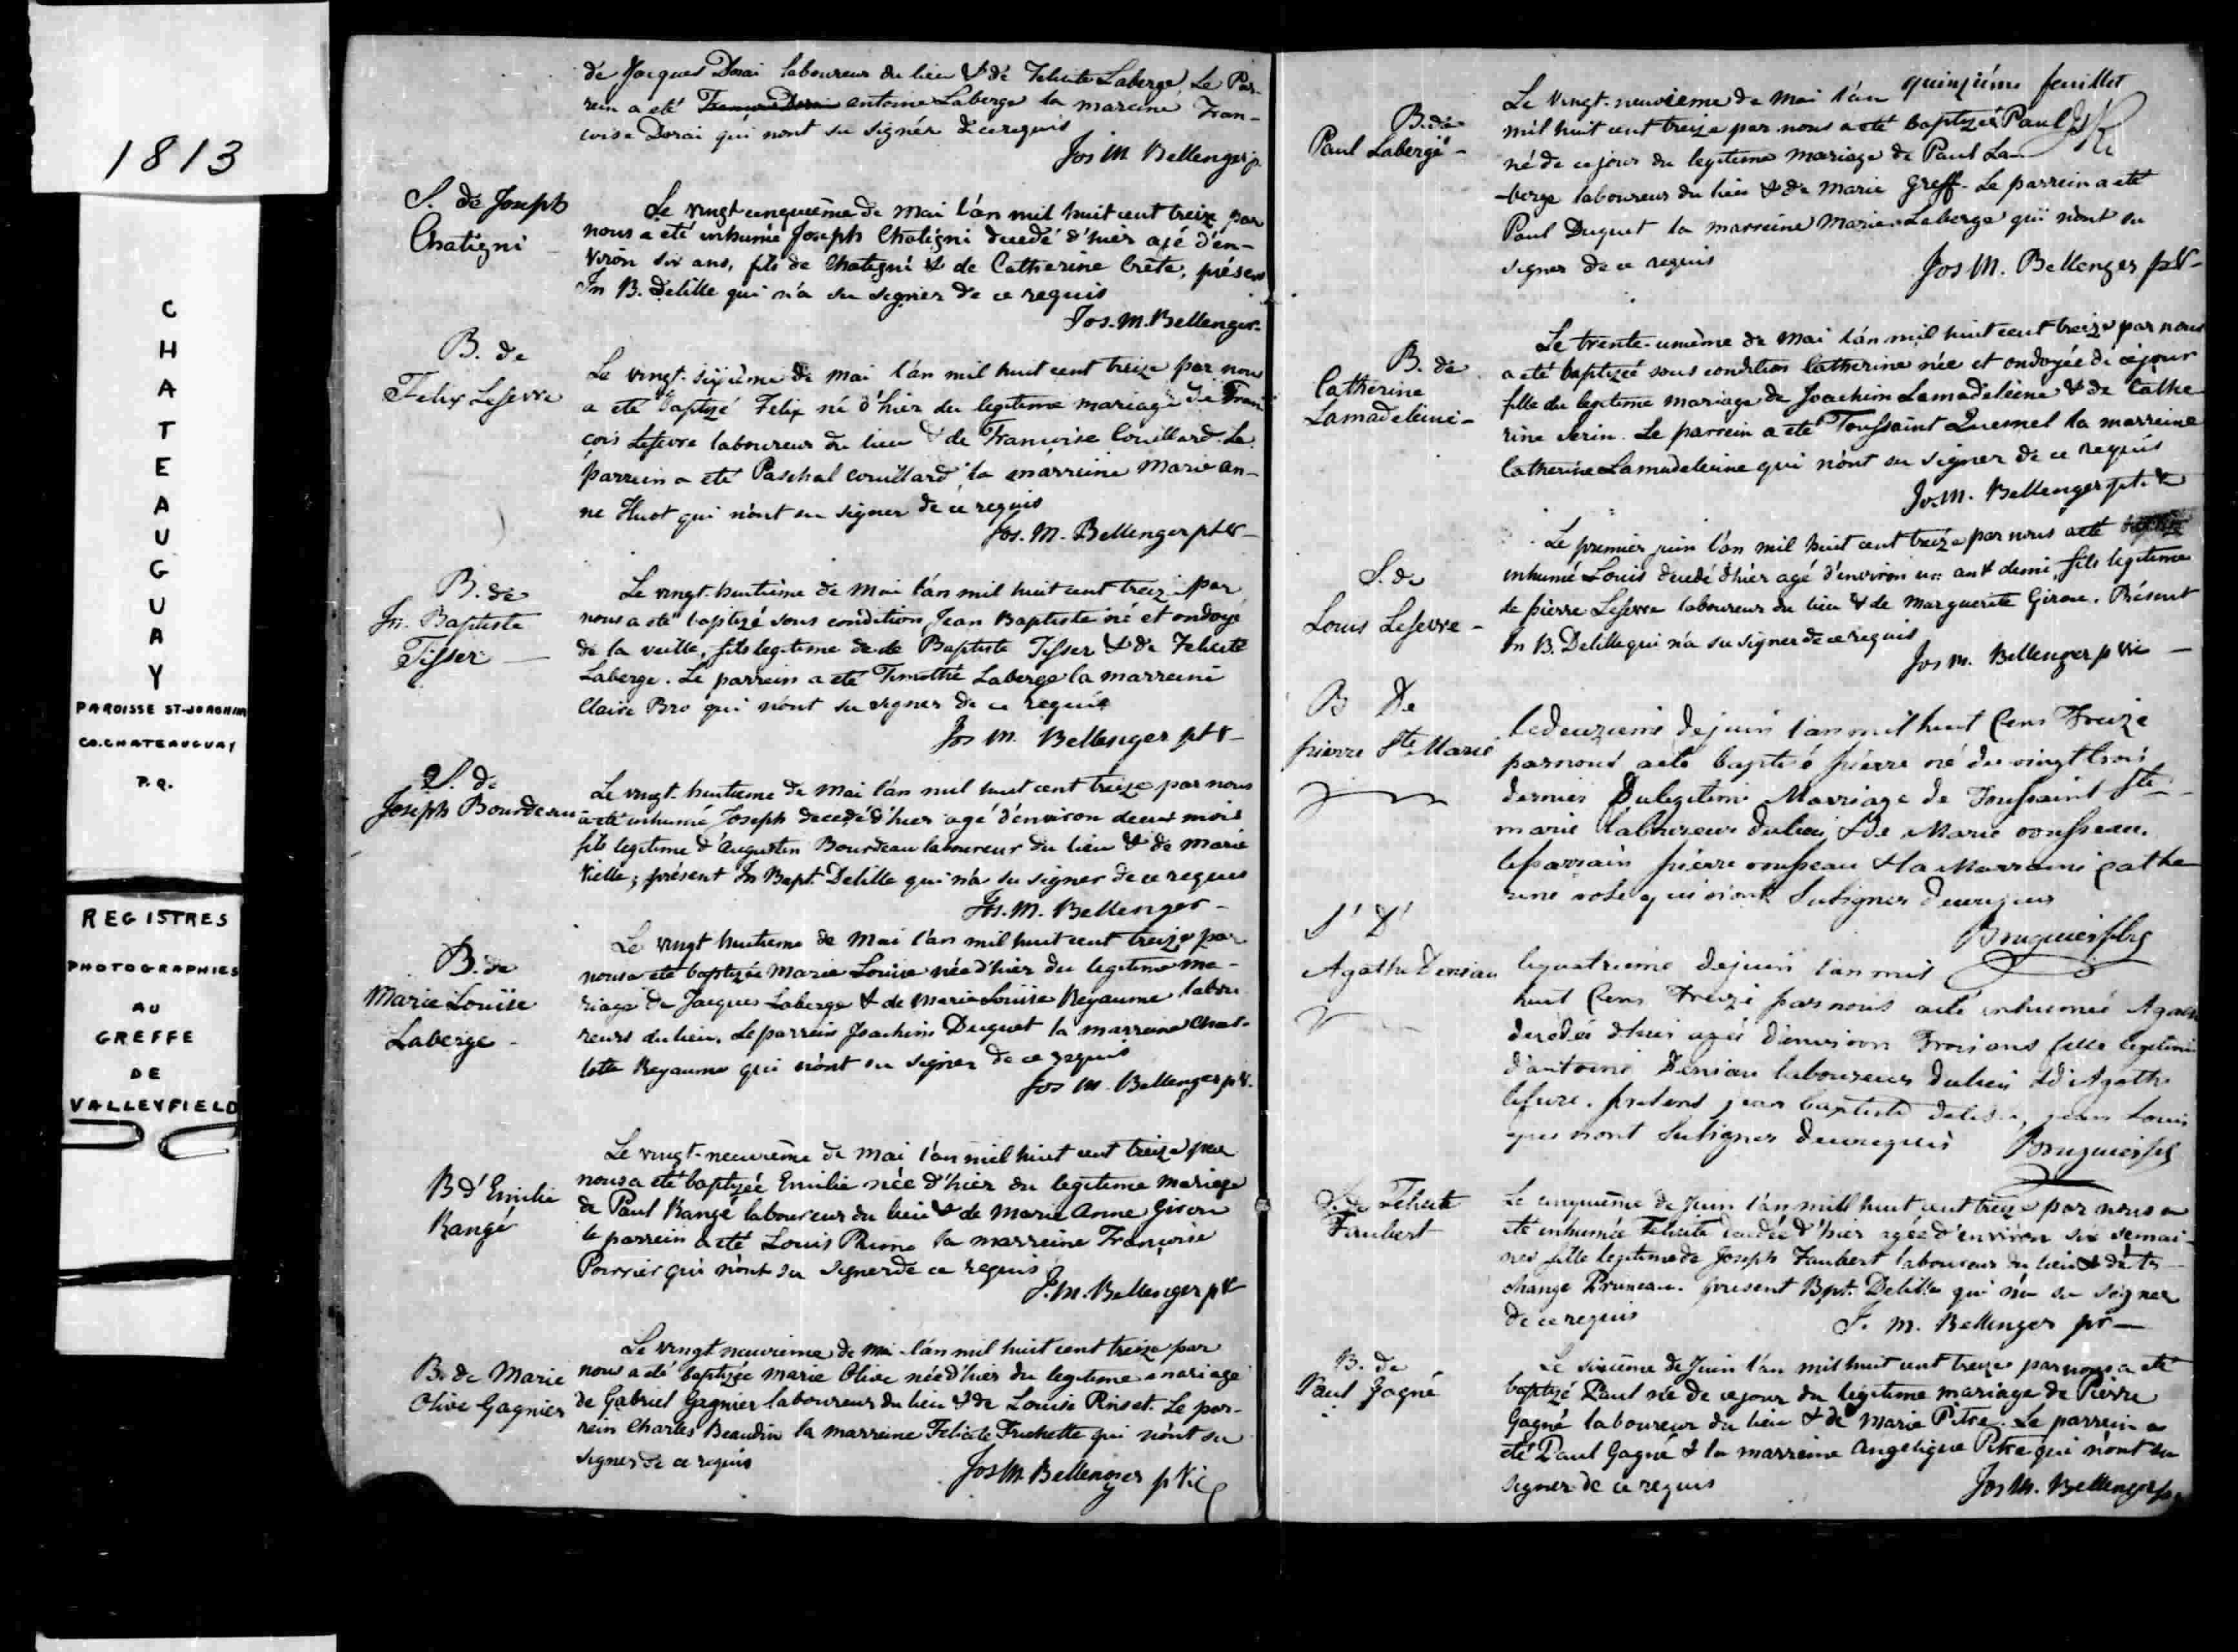 1813
CHATEAUGUAY
PAROISSE ST-JOACHIM
CO. CHATEAUGUAY
P.Q.
REGISTRES
PHOTOGRAPHIES
AU
GREFFE
DE
VALLEYFIELD
de Jacques Dorai laboureur du lieu & de Felicite Laberge, Le Par-
rein a eté antoine Laberge la mareine Fran-
coise Dorai qui nont su signér de ce requis
Jos M Bellenger p
S. de Joseph
Chatigni
Le vingt cinquième de mai l'an mil huit cent treize, par
nous a eté inhumé Joseph Chatigni decedé d'hier agé d'en-
viron six ans, fils de Chatigni & de Catherine Crête, présent
Jn B. Delille qui n'a su signer de ce requis
Jos. M. Bellenger
B. de
Felix Lefevre
Le vingt-sixième de mai l'an mil huit cent treize par nous
a eté baptizé Felix né d'hier du legitime mariage de Fran
cois Lefevre laboureur du lieu & de Francoise Couillard. Le
parrein a eté Paschal Couillard, la marreine Marie an-
ne Huot qui n'ont su signer de ce requis
Jos. M. Bellenger ptr
B. de
Jn. Baptiste
Tisser
Le vingt-huitième de Mai l'an mil huit cent treize par
nous a eté baptizé sous condition Jean Baptiste né et ondoyé
de la veille, fils legitime de de Baptiste Tisser & de Felicité
Laberge. Le parrein a eté Timothé Laberge la marreine
Claire Bro qui n'ont su signer de ce requis
Jos M. Bellenger ptr
S. de
Joseph Bourdeau
Le vingt-huitieme de mai l'an mil huit cent treize par nous
a eté inhumé Joseph decedé d'hier agé d'environ deux mois
fils legitime d'Augustin Bourdeau laboureur du lieu & de marie
Vielle; présent Jn Bapt. Delille qui n'a su signer de ce requis
Jos. M. Bellenger
B. de
Marie Louise
Laberge
Le vingt huitieme de Mai l'an mil huit cent treize par
nous a eté baptizée Marie Louise née d'hier du legitime ma-
riage de Jacques Laberge & de Marie Louise Reyaume labou
reurs du lieu. Le parrein Joachim Duquet la marreine Char-
lotte Reyaume qui n'ont su signer de ce requis
Jos M. Bellenger ptr.
B d'Emilie
Rangé
Le vingt-neuvième de mai l'an mil huit cent treize par
nous a eté baptizée Emilie née d'hier du legitime mariage
de Paul Rangé laboureur du lieu & de Marie Anne Giron
le parrein a eté Louis Primo la marreine Françoise
Poirrier qui n'ont su signer de ce requis
J. M. Bellenger ptr
B. de Marie
Olive Gagnier
Le vingt neuvieme de Mai l'an mil huit cent treize par
nous a eté baptizée Marie Olive née d'hier du legitime mariage
de Gabriel Gagnier laboureur du lieu & de Louise Pinset. Le par-
rein Charles Beaudin la marreine Felicite Frichette qui n'ont su
signer de ce requis
Jos M Bellenger p Vic
quinziéme feuillet
B. de
Paul Labergé
Le vingt-neuvieme de Mai l'an
mil huit cent treize par nous a eté baptizé Paul
né de ce jour du legitime mariage de Paul La-
-berge laboureur du lieu & de Marie Greff. Le parrein a eté
Paul Duquet la marreine Marie Laberge qui n'ont su
signer de ce requis
Jos M. Bellenger ptr
B. de
Catherine
Lamadeleine
Le trente-unième de Mai l'an mil huit cent treize par nous
a eté baptizée sous condition Catherine née et ondoyée de ce jour
fille du legitime mariage de Joachim Lamadeleine & de Cathe
rine Serin. Le parrein a eté Toussaint Quesnel la marreine
Catherine Lamadeleine qui n'ont su signer de ce requis
Jos. M. Bellenger ptr
S. de
Louis Lefevre
Le premier juin l'an mil huit cent treize par nous a eté
inhumé Louis decedé d'hier agé d'environ un an & demi, fils legitime
de pierre Lefevre laboureur du lieu & de Marguerite Girou. Présent
Jn B. Delille qui n'a su signer de ce requis
Jos M. Bellenger p Vic
B De
pierre Ste Marie
le deuxieme de juin l'an mil huit Cens Treize
par nous a eté baptisé pierre né du vingt trois
dernier Du legitime Marriage de Toussaint Ste
marie laboureur du lieu, & De Marie rousseau.
le parrain pierre rousseau & la Marraine cathe
rine role qui n'ont Su signer de ce requis
Bruguier ptre
S' D'
Agathe Deniau
le quatrieme de juin l'an mil
huit Cens treize par nous a eté inhumée Agathe
decedée d'hier agée d'environ Trois ans fille legitime
d'antoine Deniau laboureur du lieu & d'Agathe
lefevre. presens jean baptiste delisle, jean Louis
qui n'ont Su signer de ce requis
Bruguier ptre
S. de Felicite
Faubert
Le cinquième de Juin l'an mill huit cent treize par nous a
eté inhumée Felicite decedée d'hier agée d'environ six semai-
nes fille legitime de Joseph Faubert laboureur du lieu & d'Ar-
change Pruneau. present Bpt. Delille qui n'a su signer
de ce requis
J. M. Bellenger ptr
B. de
Paul Gagné
Le sixième de Juin l'an mil huit cent treize par nous a eté
baptizé Paul né de ce jour du legitime mariage de Pierre
Gagné laboureur du lieu & de Marie Pitre. Le parrein a
eté Paul Gagné & la marreine Angelique Pitre qui n'ont su
signer de ce requis
Jos M. Bellenger p